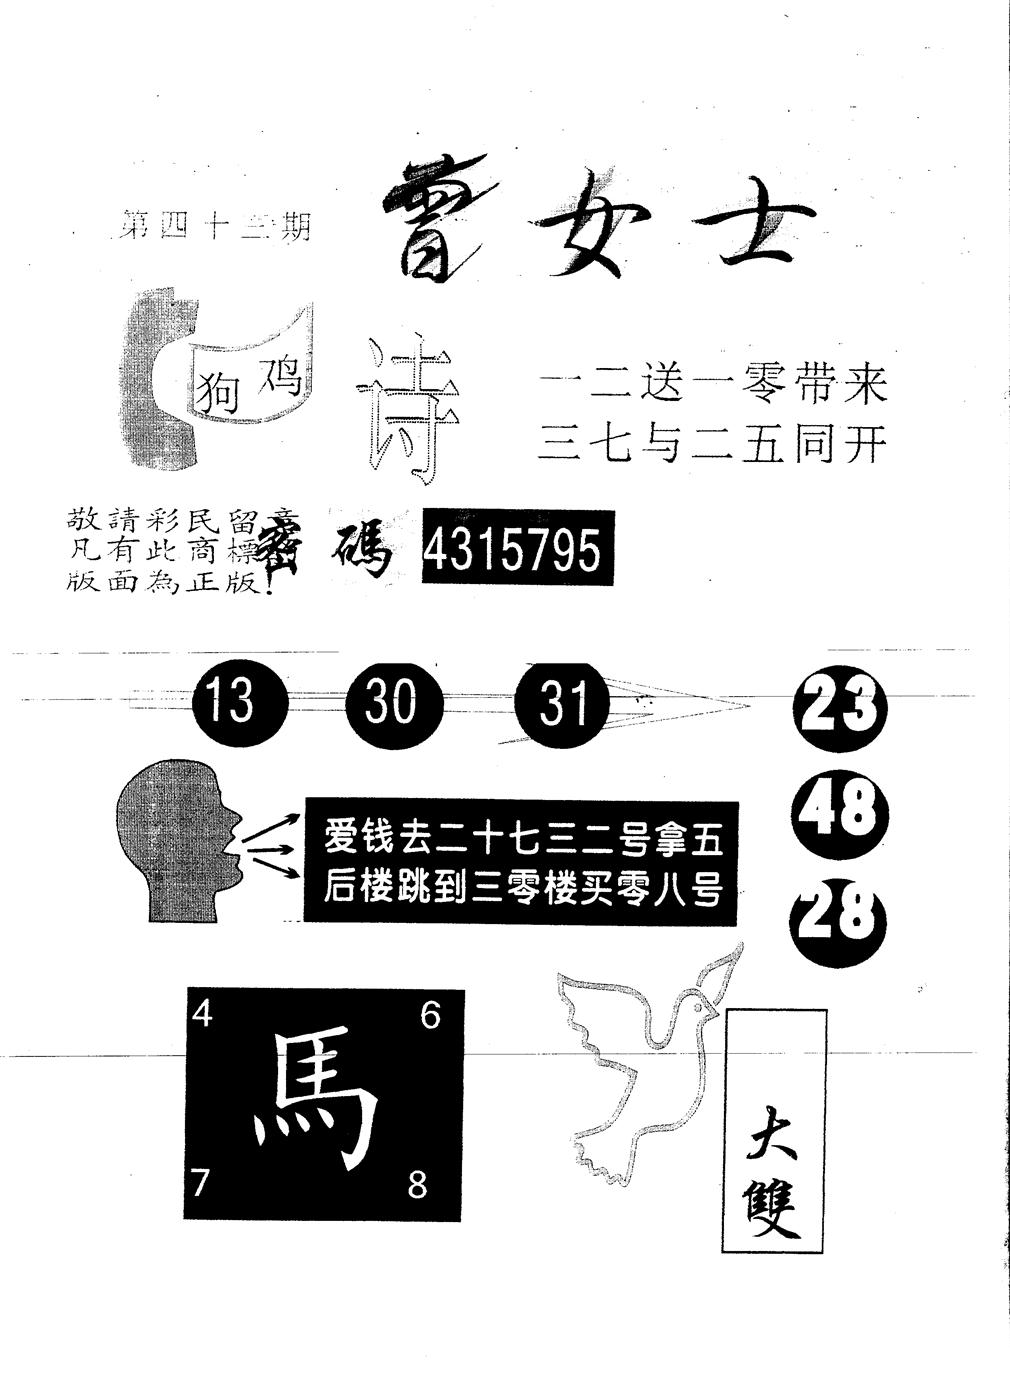 曾女士
第四十三期
狗 鸡
诗
一二送一零带来
三七与二五同开
敬請彩民留意
凡有此商標
版面為正版!
密碼 4315795
13 30 31 23
48
爱钱去二十七三二号拿五
后楼跳到三零楼买零八号
28
4 6
馬
7 8
大
雙